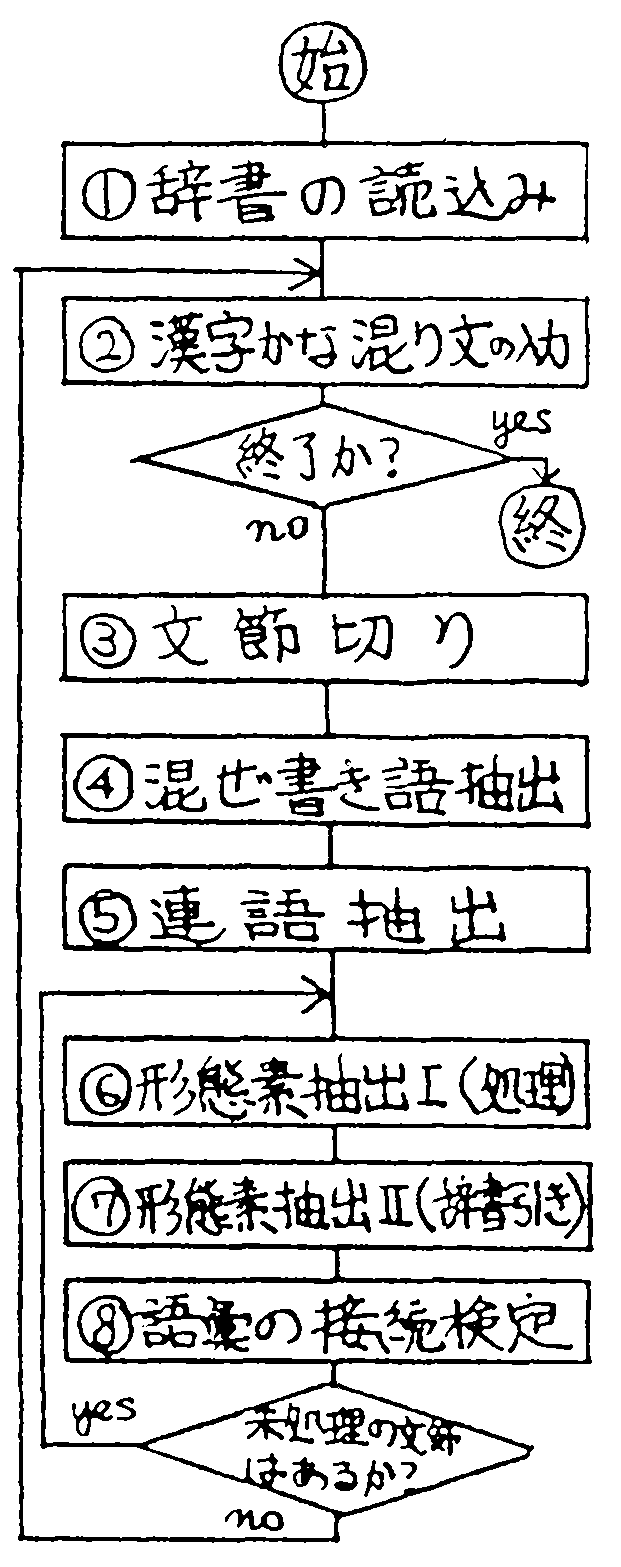 始
①辞書の読込み
②漢字かな混り文の入力
終了か?
yes
終
no
③文節切り
④混ぜ書き語抽出
⑤連語抽出
⑥形態素抽出Ⅰ(処理)
⑦形態素抽出Ⅱ(辞書引き)
⑧語彙の接続検定
yes
未処理の文節
はあるか?
no